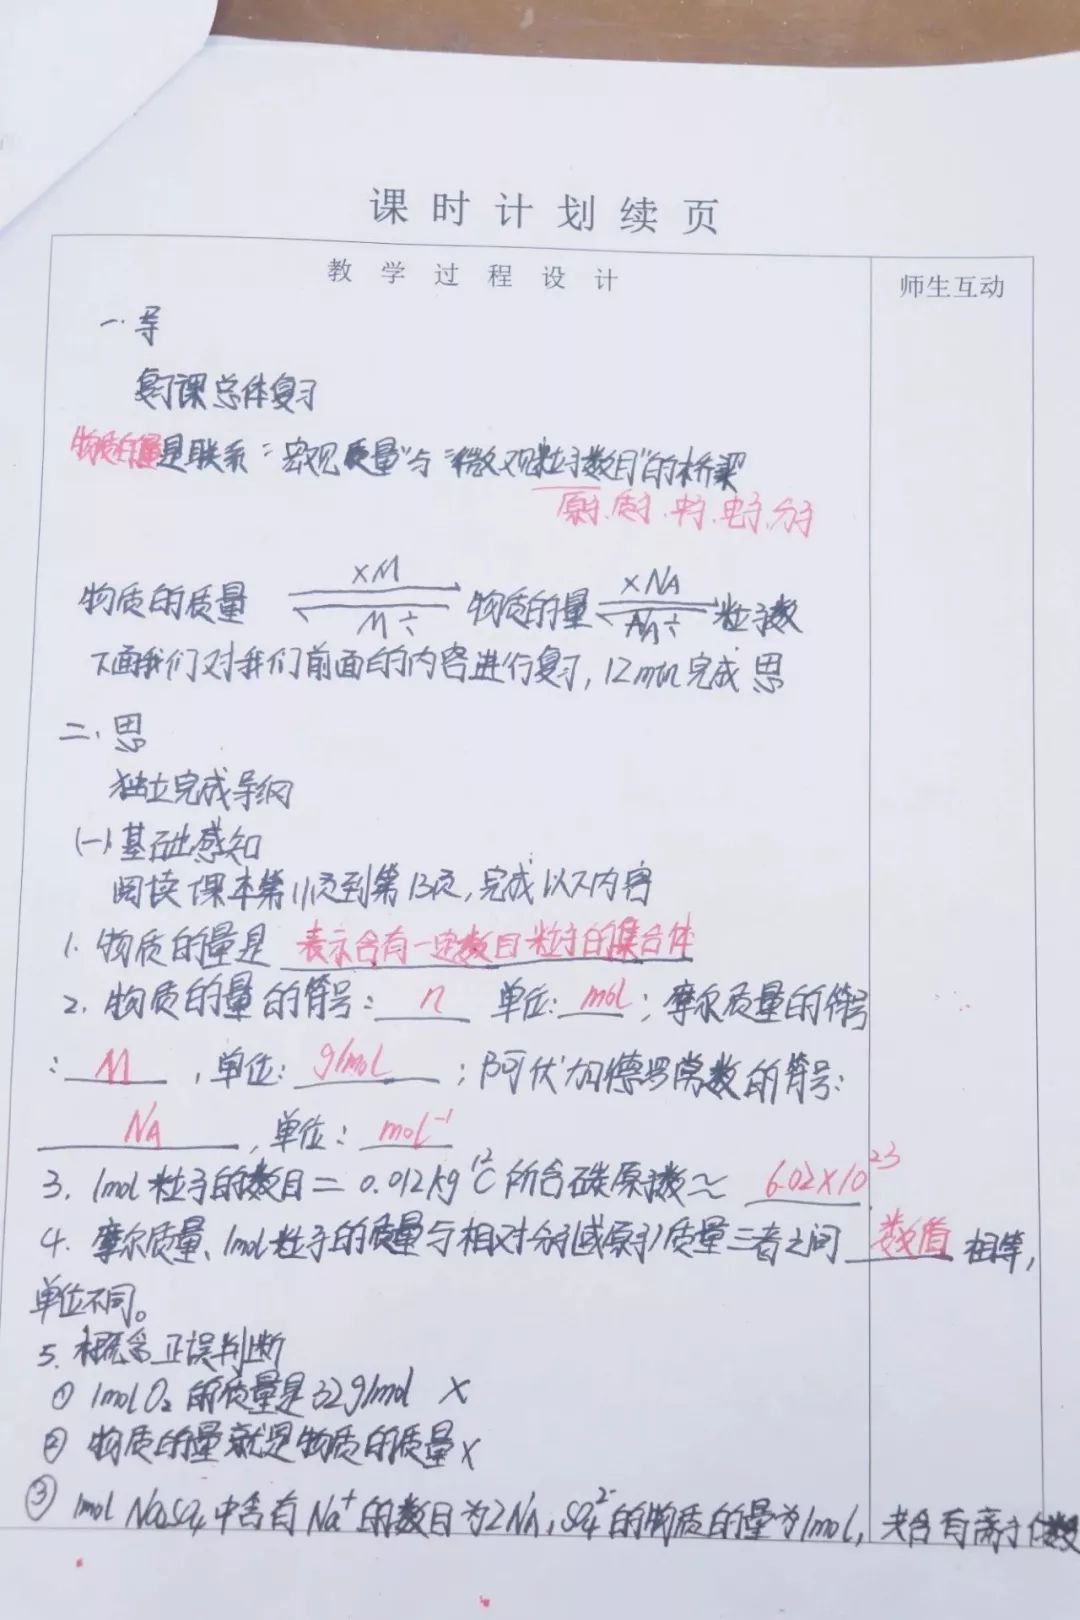 课时计划续页
教学过程设计
师生互动
一.导
复习课总体复习
物质的量是联系“宏观质量”与“微观粒子数目”的桥梁
原子.质子.中子.电子.分子
×M ×NA
物质的质量 物质的量 粒子数
M÷ NA÷
下面我们对我们前面的内容进行复习,12min完成思
二、思
独立完成导纲
(一)基础感知
阅读课本第11页到第13页,完成以下内容
1.物质的量是 表示含有一定数目粒子的集合体
2.物质的量的符号: n 单位: mol ;摩尔质量的符号
: M ,单位: g/mol ;阿伏加德罗常数的符号:
NA ,单位: mol⁻¹
3. 1mol粒子的数目=0.012kg ¹²C所含碳原子数≈ 6.02×10²³
4. 摩尔质量、1mol粒子的质量与相对分子(或原子)质量三者之间 数值 相等,
单位不同。
5. 概念正误判断
① 1mol O₂的质量是32g/mol ×
② 物质的量就是物质的质量×
③ 1mol Na₂SO₄中含有Na⁺的数目为2NA,SO₄²⁻的物质的量为1mol,共含有离子数